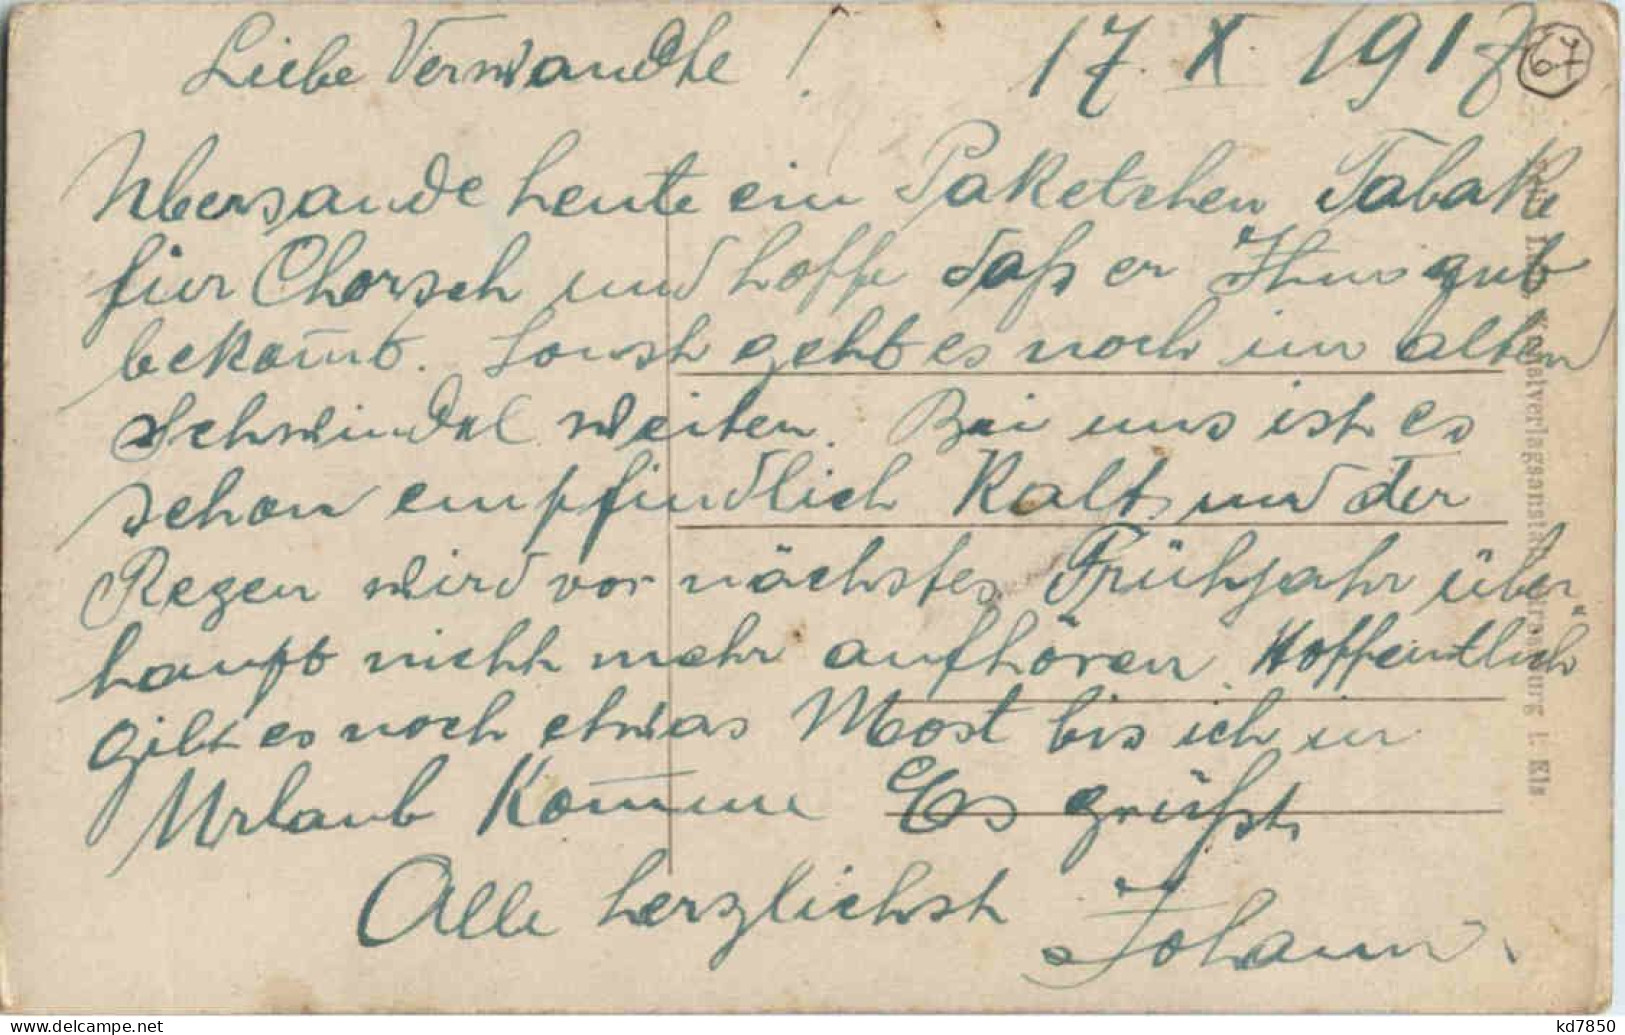 Liebe Verwandte ! 17. X. 1917
67
Übersande heute ein Paketchen Tabak
für Chorsch und hoffe daß er Ihm gut
bekom̄t. Sonst geht es noch im alten
Schwindel weiter. Bei uns ist es
schon empfindlich Kalt und der
Regen wird vor nächstes Frühjahr über-
haupt nicht mehr aufhören. Hoffentlich
gibt es noch etwas Most bis ich in
Urlaub Komme Es grüßt
Alle herzlichst Johann.
Kunstverlagsanstalt, Strassburg i. Els
delcampe.net
kd7850